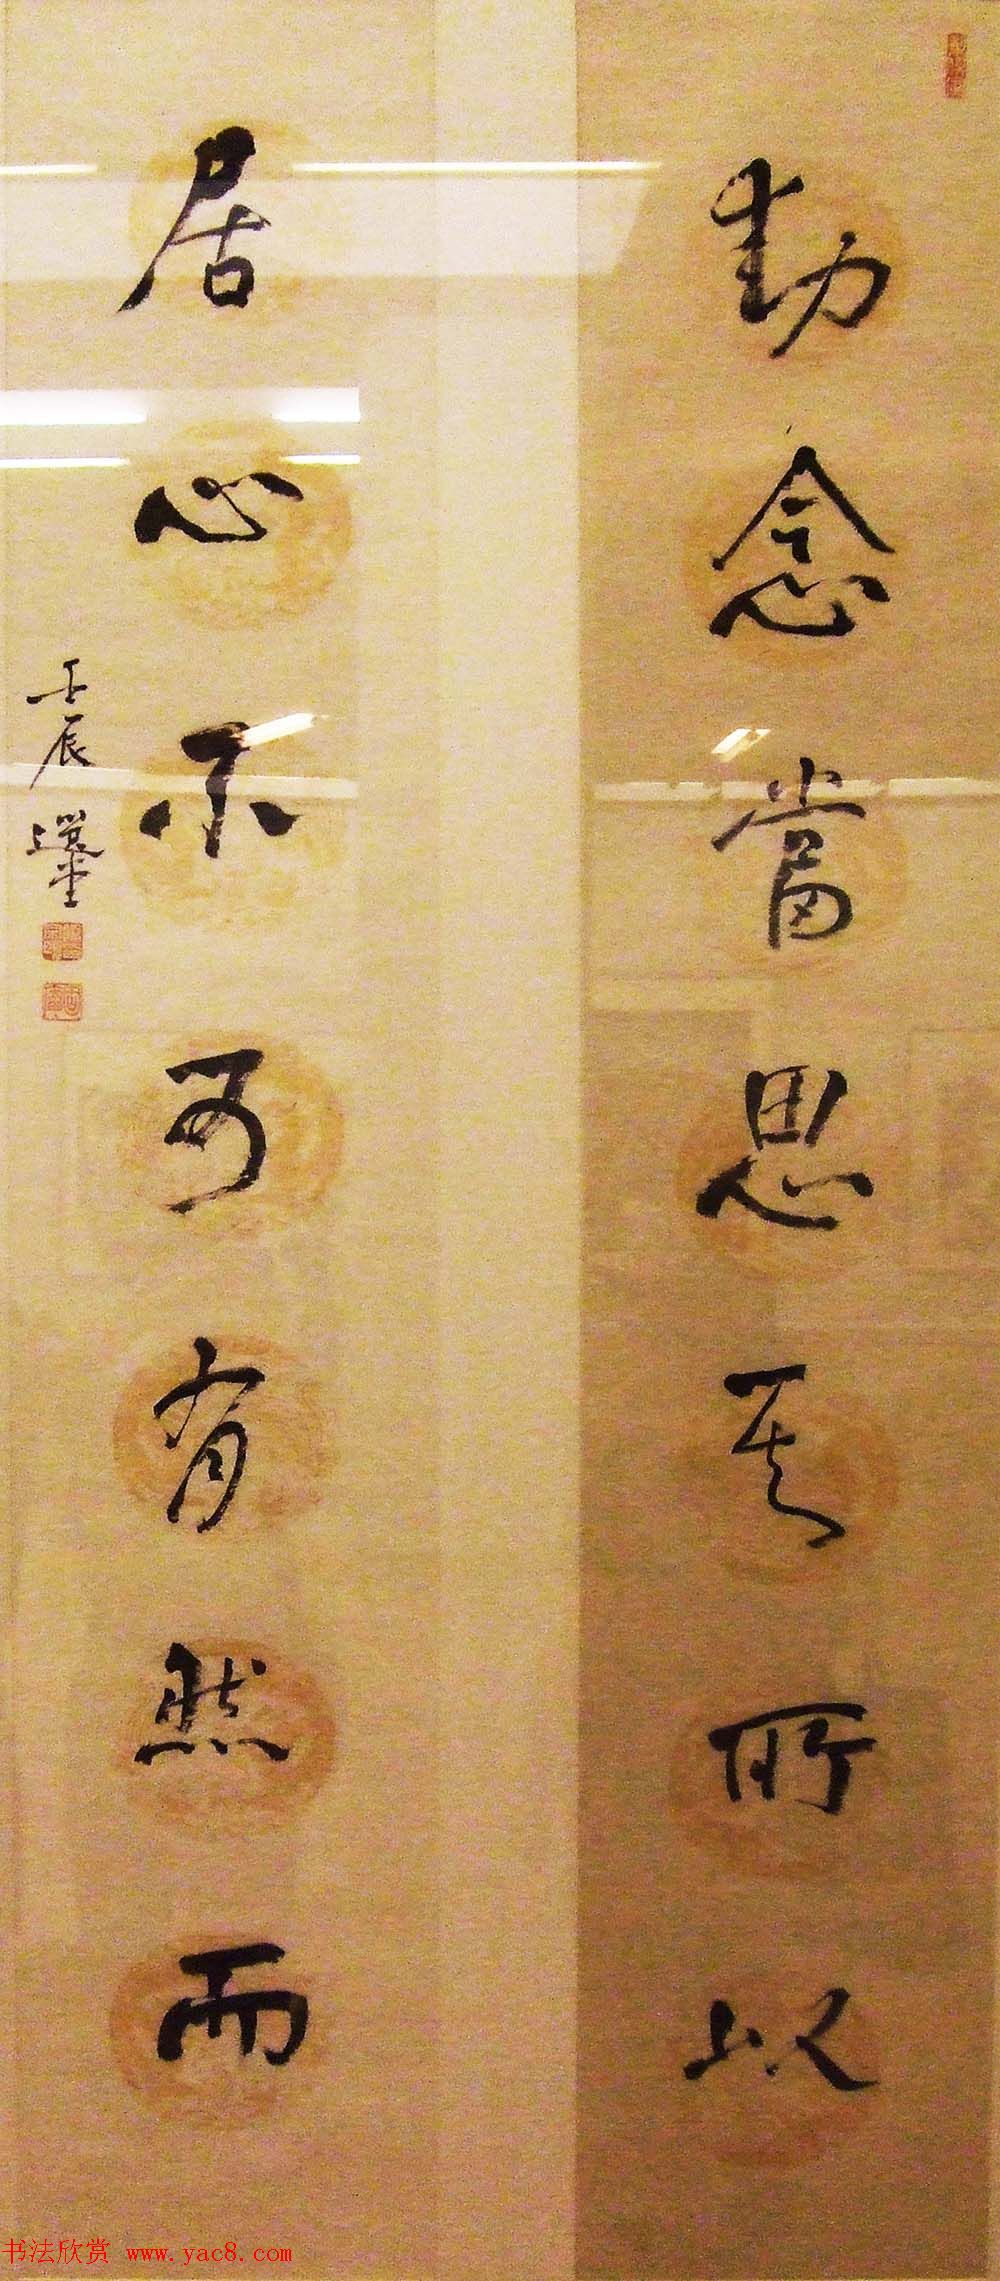 動念當思其所以
居心不可有然而
壬辰
书法欣赏 www.yac8.com